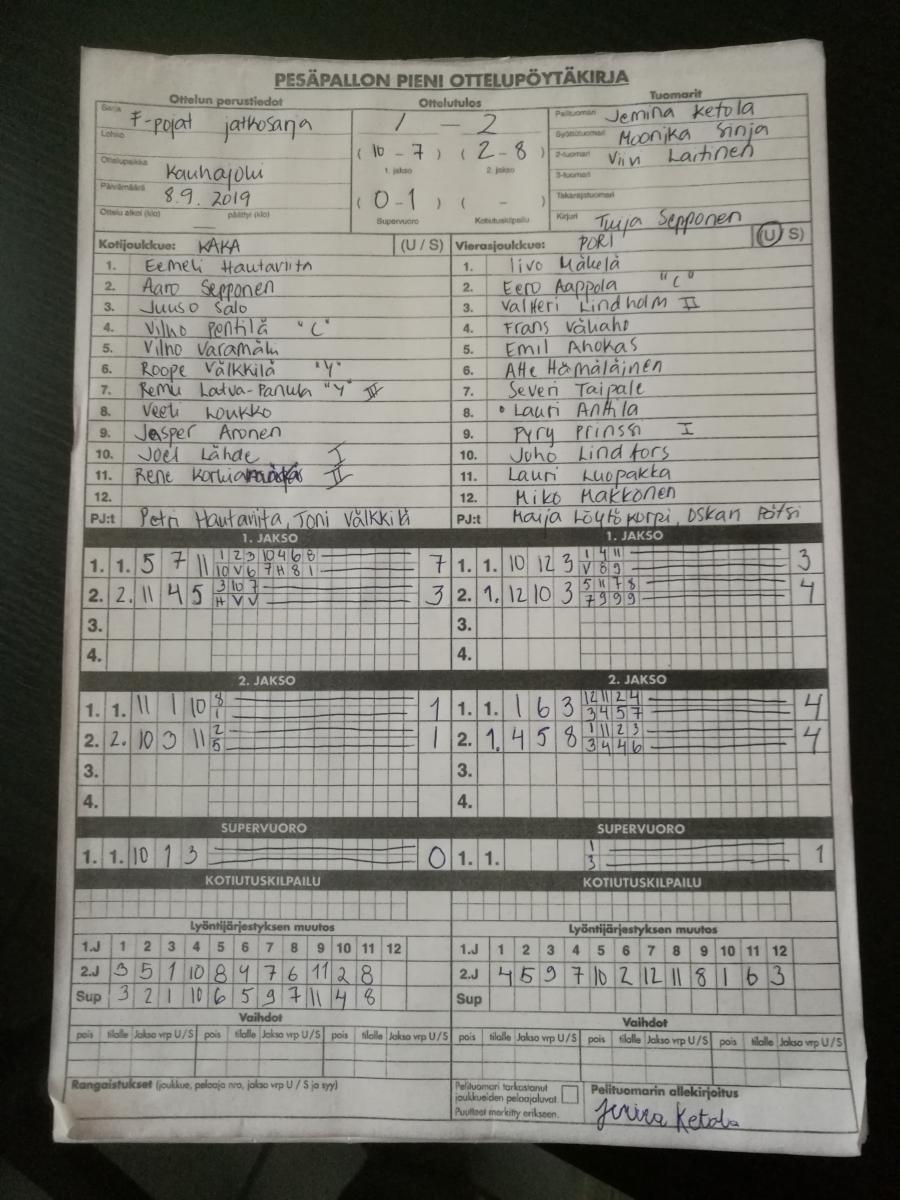 PESÄPALLON PIENI OTTELUPÖYTÄKIRJA
Ottelun perustiedot Ottelutulos Tuomarit
Sarja F-pojat jatkosarja 1 - 2 Pelituomari Jemina Ketola
Lohko Syöttötuomari Moonika Sinja
( 10 - 7 ) ( 2 - 8 ) 2-tuomari Viin Laitinen
Ottelupaikka Kauhajoki 1. jakso 2. jakso 3-tuomari
Päivämäärä 8.9.2019 ( 0 - 1 ) ( - ) Takarajatuomari
Ottelu alkoi (klo) päättyi (klo) Supervuoro Kotiutuskilpailu Kirjuri Tuija Sepponen
Kotijoukkue: KAKA (U / S) Vierasjoukkue: PORI (U / S)
1. Eemeli Hautaviita 1. Iivo Mäkelä
2. Aaro Sepponen 2. Eero Aappola "C"
3. Juuso Salo 3. Valtteri Lindholm II
4. Vilho Pentilä "C" 4. Frans Vähäaho
5. Vilho Varamäki 5. Emil Ahokas
6. Roope Välkkilä "Y" 6. Atte Hämäläinen
7. Remu Latva-Panula "Y" III 7. Severi Taipale
8. Veeti Loukko 8. Lauri Anttila
9. Jesper Aronen 9. Pyry Prinssi I
10. Joel Lähde I 10. Joho Lindfors
11. Rene II 11. Lauri Luopakka
12. 12. Miko Makkonen
PJ:t Petri Hautaviita, Toni Välkkilä PJ:t Maija Löytökorpi, Oskari Pötsi
1. JAKSO 1. JAKSO
1. 1. 5 7 11 1 2 3 10 4 6 8 7 1. 1. 10 12 3 1 4 11 3
10 V 6 7 H 8 1 V 8 9
2. 2. 11 4 5 3 10 7 3 2. 1. 12 10 3 5 11 7 8 4
H V V 7 9 9 9
3. 3.
4. 4.
2. JAKSO 2. JAKSO
1. 1. 11 1 10 8 1 1. 1. 1 6 3 12 11 2 4 4
1 3 4 5 7
2. 2. 10 3 11 2 1 2. 1. 4 5 8 1 11 2 3 4
5 3 4 4 6
3. 3.
4. 4.
SUPERVUORO SUPERVUORO
1. 1. 10 1 3 0 1. 1. 1 1
3
KOTIUTUSKILPAILU KOTIUTUSKILPAILU
Lyöntijärjestyksen muutos Lyöntijärjestyksen muutos
1.J 1 2 3 4 5 6 7 8 9 10 11 12 1.J 1 2 3 4 5 6 7 8 9 10 11 12
2.J 3 5 1 10 8 4 7 6 11 2 8 2.J 4 5 9 7 10 2 12 11 8 1 6 3
Sup 3 2 1 10 6 5 9 7 11 4 8 Sup
Vaihdot Vaihdot
pois tilalle Jakso vrp U / S pois tilalle Jakso vrp U / S pois tilalle Jakso vrp U / S pois tilalle Jakso vrp U / S pois tilalle Jakso vrp U / S pois tilalle Jakso vrp U / S
Rangaistukset (joukkue, pelaaja nro, jakso vrp U / S ja syy) Pelituomari tarkastanut Pelituomarin allekirjoitus
joukkueiden pelaajaluvat.
Puutteet merkitty erikseen. Jemina Ketola